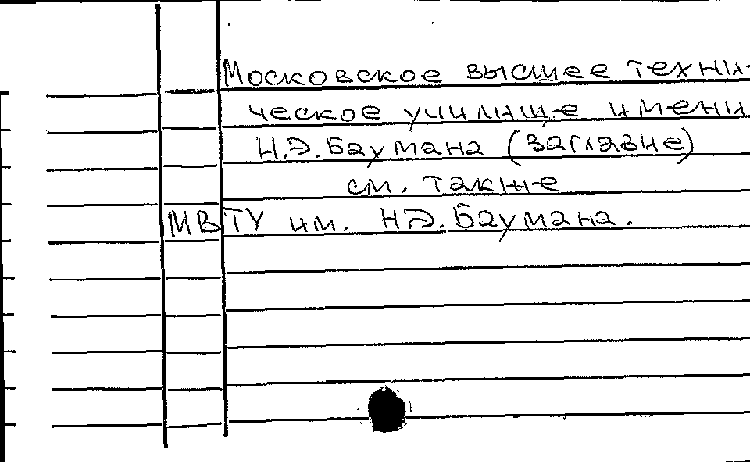 Московское высшее техни-
ческое училище имени
Н.Э.Баумана (заглавие)
см. также
МВТУ им. Н.Э.Баумана.